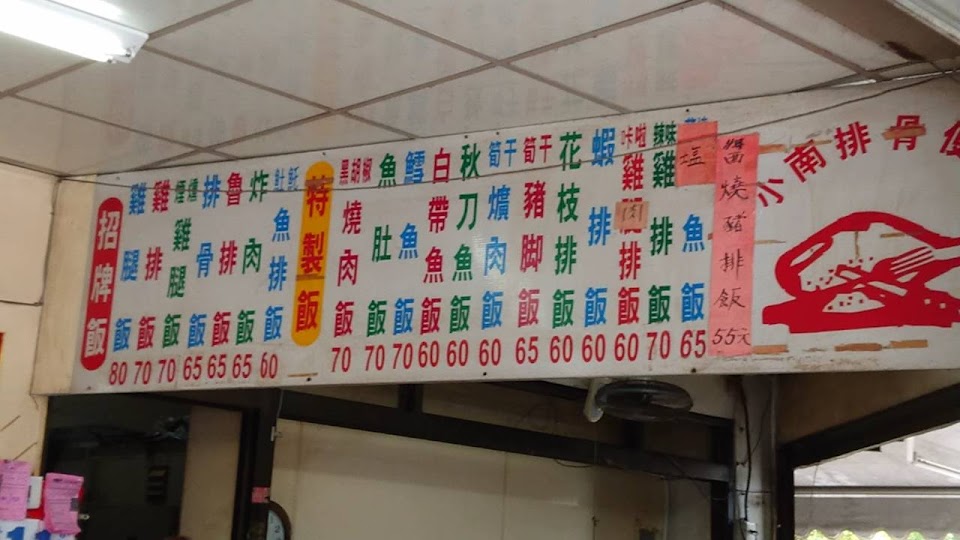 招牌飯
雞腿飯 80
雞排飯 70
煙燻雞腿飯 70
排骨飯 65
魯排飯 65
炸肉飯 65
魚排飯 60
特製飯
黑胡椒燒肉飯 70
魚肚飯 70
鱈魚飯 70
白帶魚飯 60
秋刀魚飯 60
筍干爌肉飯 60
筍干豬脚飯 65
花枝排飯 60
蝦排飯 60
咔啦雞腿排飯 60
肉
辣味雞排飯 70
塩
魚飯 65
醬燒豬排飯 55元
小南排骨